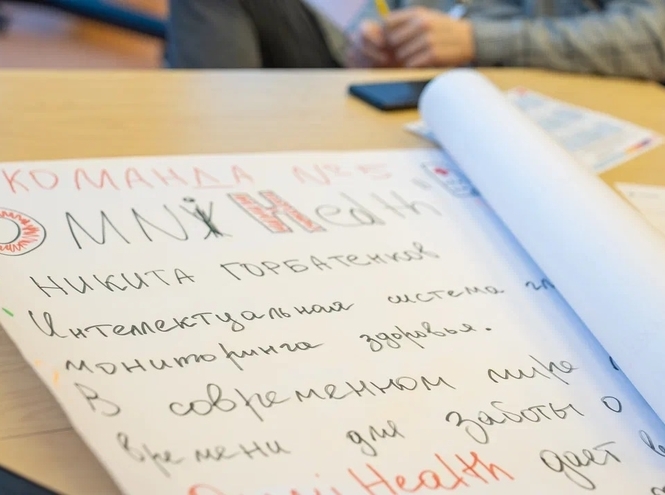 КОМАНДА №5
OMNi Health
НИКИТА ГОРБАТЕНКОВ
Интеллектуальная система
мониторинга здоровья.
В современном мире
времени для заботы о
Health даёт